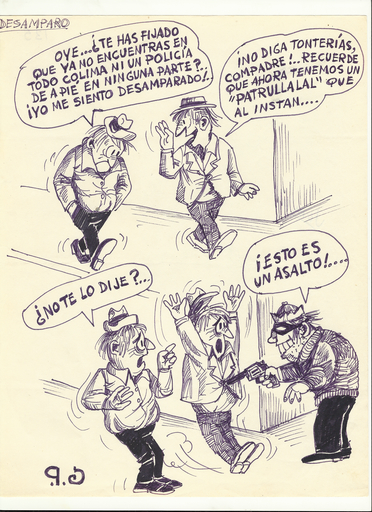 DESAMPARO
OYE...¿TE HAS FIJADO
QUE YA NO ENCUENTRAS EN
TODO COLIMA NI UN POLICÍA
DE A PIE EN NINGUNA PARTE?..
¡YO ME SIENTO DESAMPARADO!.
¡NO DIGA TONTERÍAS,
COMPADRE!.. RECUERDE
QUE AHORA TENEMOS UN
"PATRULLALAL" QUE
AL INSTAN....
¿NO TE LO DIJE?...
¡ESTO ES
UN ASALTO!....